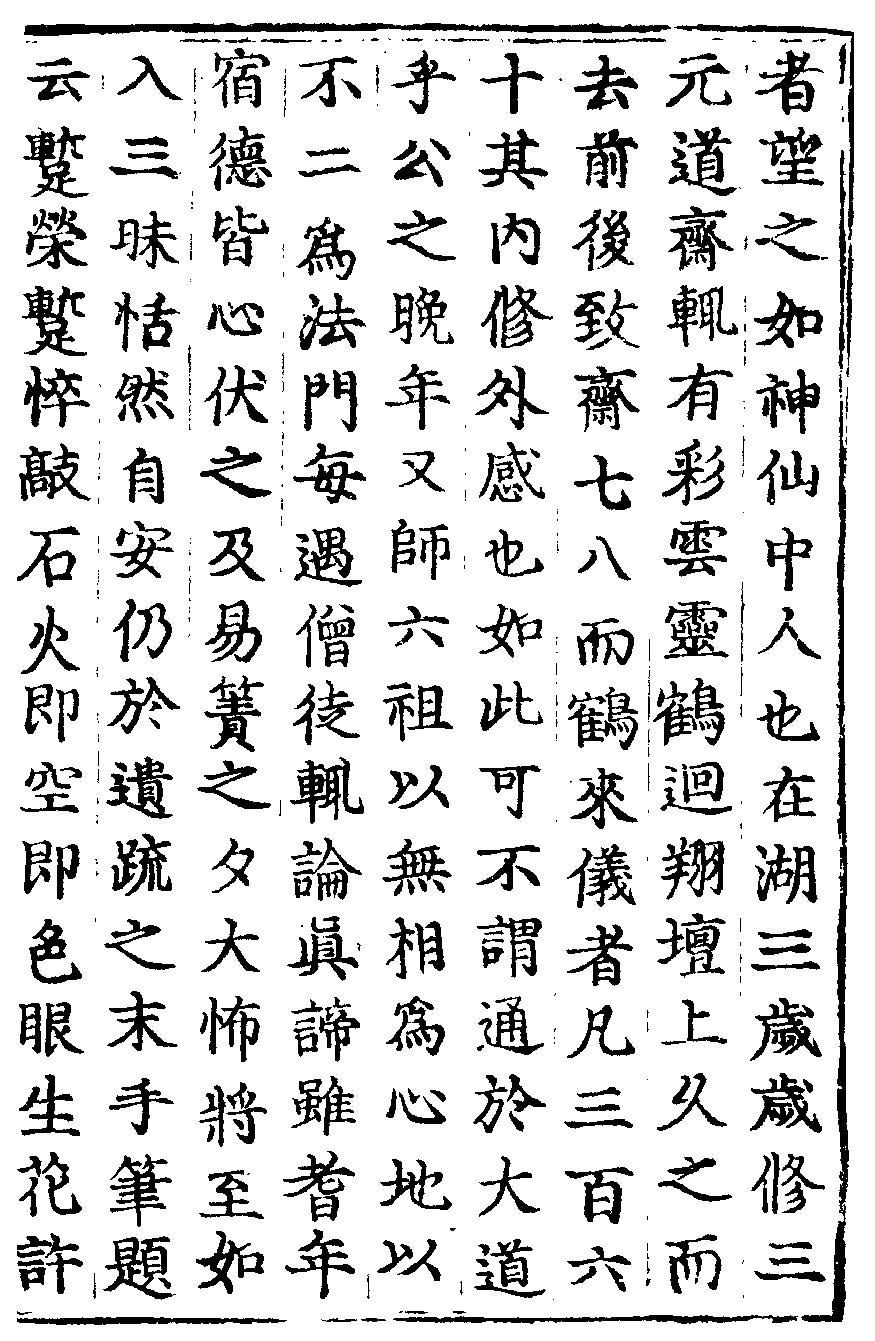 者望之如神仙中人也在湖三歲歲修三
元道齋輒有彩雲靈鶴迴翔壇上久之而
去前後致齋七八而鶴來儀者凡三百六
十其內修外感也如此可不謂通於大道
乎公之晚年又師六祖以無相爲心地以
不二爲法門每遇僧徒輒論眞諦雖耆年
宿德皆心伏之及易簀之夕大怖將至如
入三昧恬然自安仍於遺疏之末手筆題
云蹔榮蹔悴敲石火即空即色眼生花許